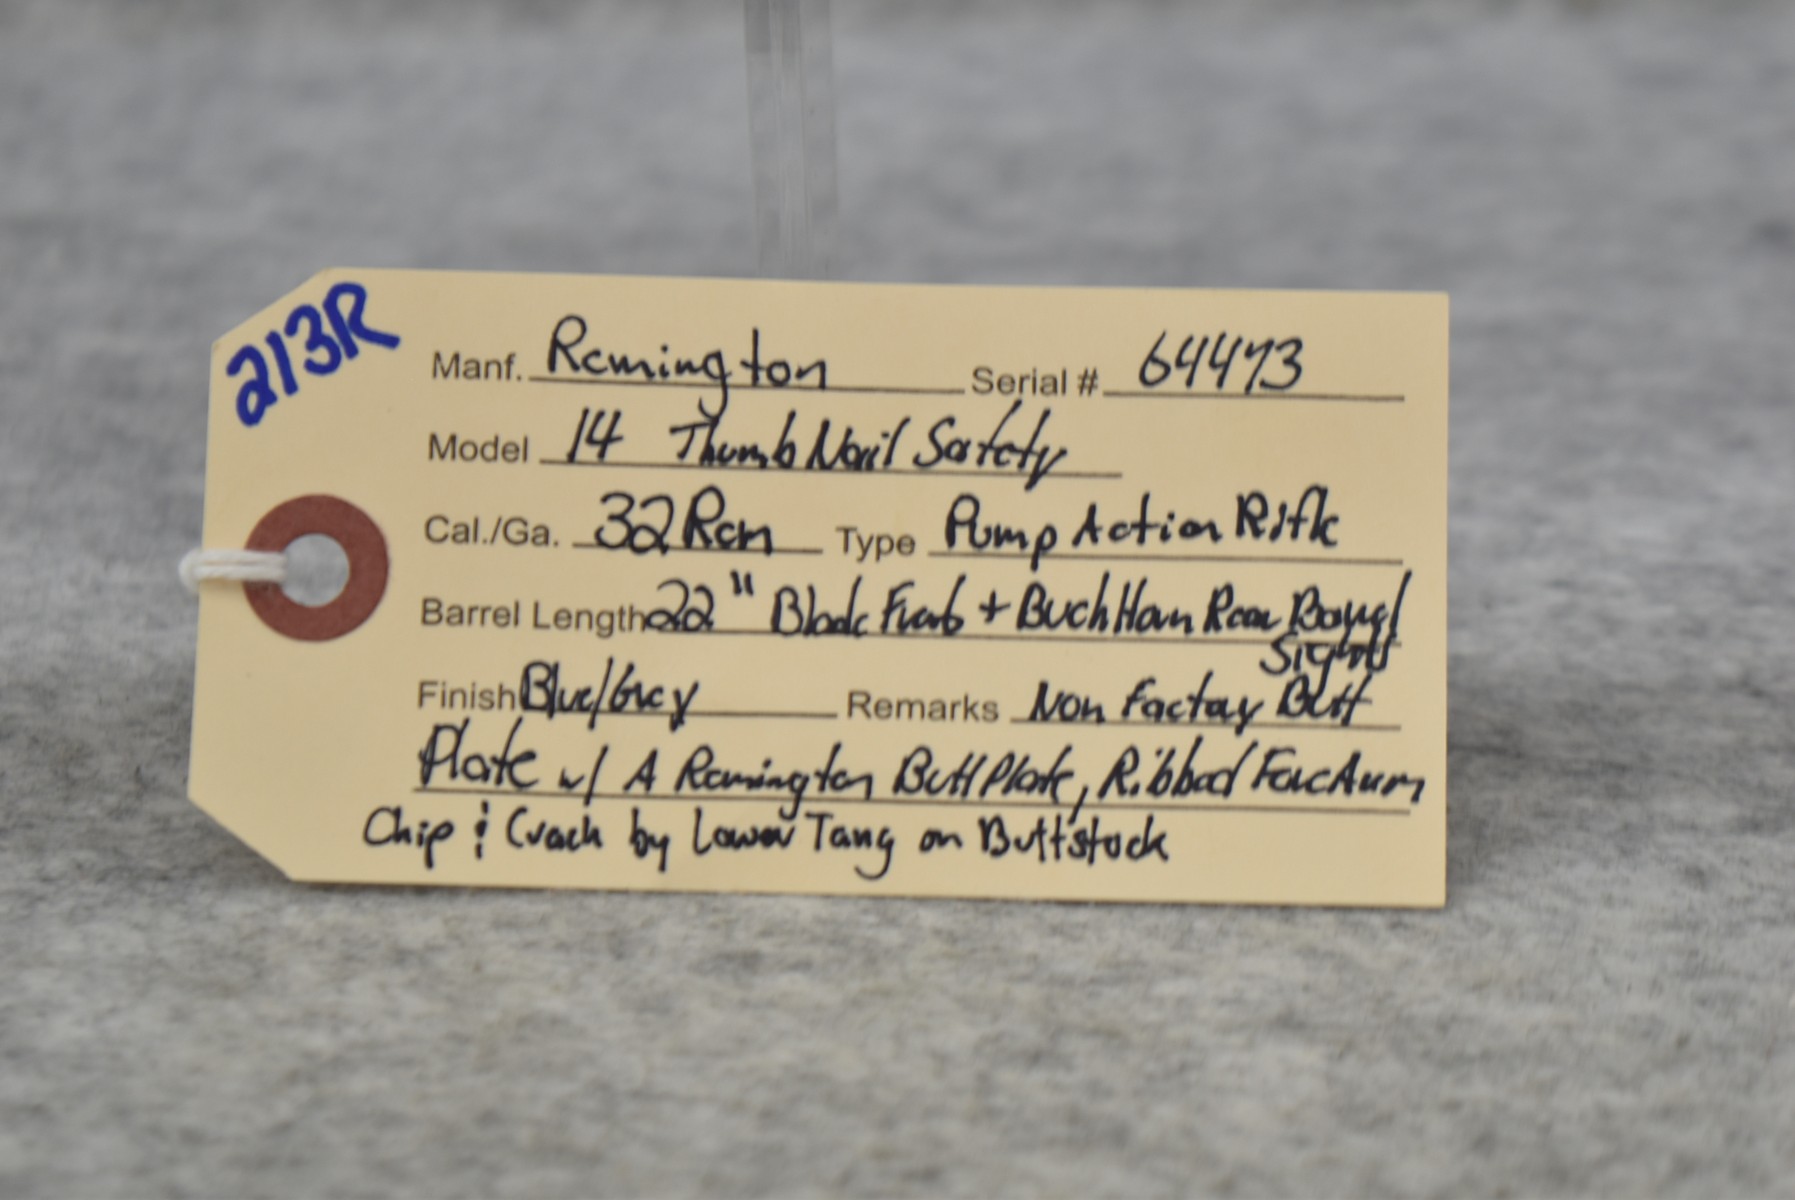 213R
Manf. Remington Serial # 64473
Model 14 Thumb Nail Safety
Cal./Ga. 32 Rem Type Pump Action Rifle
Barrel Length 22" Blade Front + Buck Horn Rear Barrel
Sights
Finish Blue/Grey Remarks Non Factory Butt
Plate w/ A Remington Butt Plate, Ribbed ForeArm
Chip & Crack by Lower Tang on Buttstock